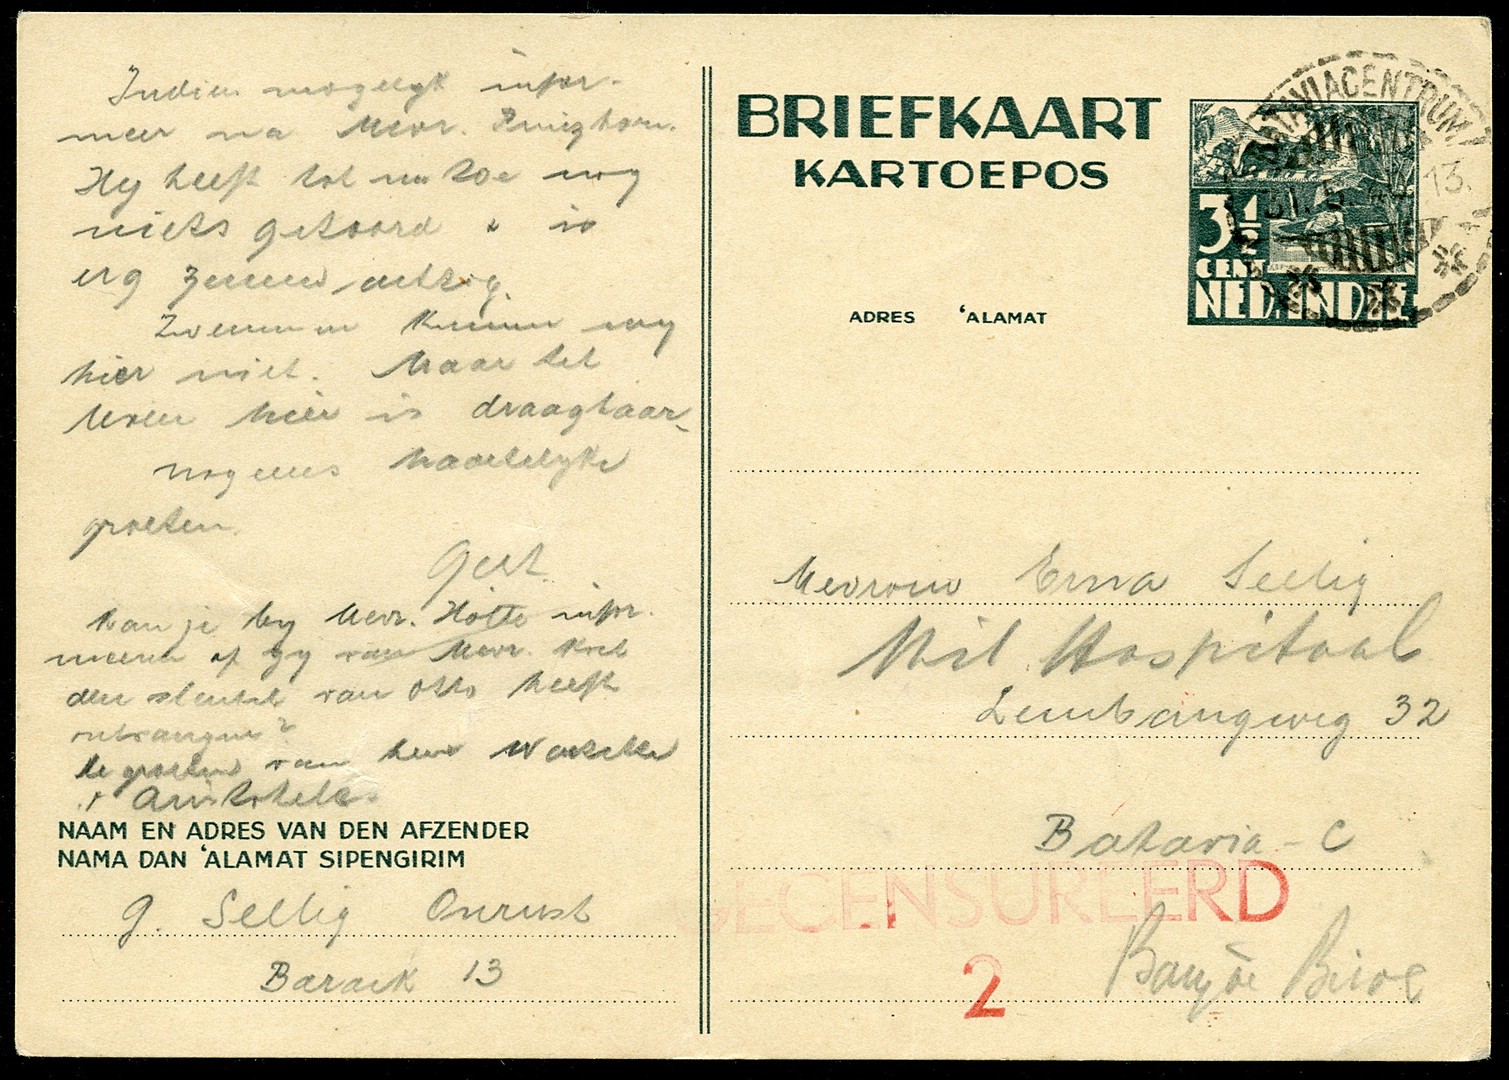 Indien mogelyk infor-
meer na Mevr.
Hy heeft tot nu toe nog
niets gehoord & is
erg zenuw-achtig.
Zwemmen kunnen wy
hier niet. Maar het
leven hier is draagbaar.
nogeens haartelyke
groeten.
Gert.
kan je by Mevr. Hotte infor-
meeren of zy van Mevr.
den sleutel van Otto heeft
ontvangen?
de groeten van heer
+ Aristoteles
NAAM EN ADRES VAN DEN AFZENDER
NAMA DAN 'ALAMAT SIPENGIRIM
G. Seelig Onrust
Barack 13
BRIEFKAART
KARTOEPOS
3½
CENT
NED.INDIË
BATAVIACENTRUM
31.5. 13.
ADRES 'ALAMAT
Mevrouw Erna Seelig
Mil. Hospitaal
Lembangweg 32
Batavia-C
GECENSUREERD
2